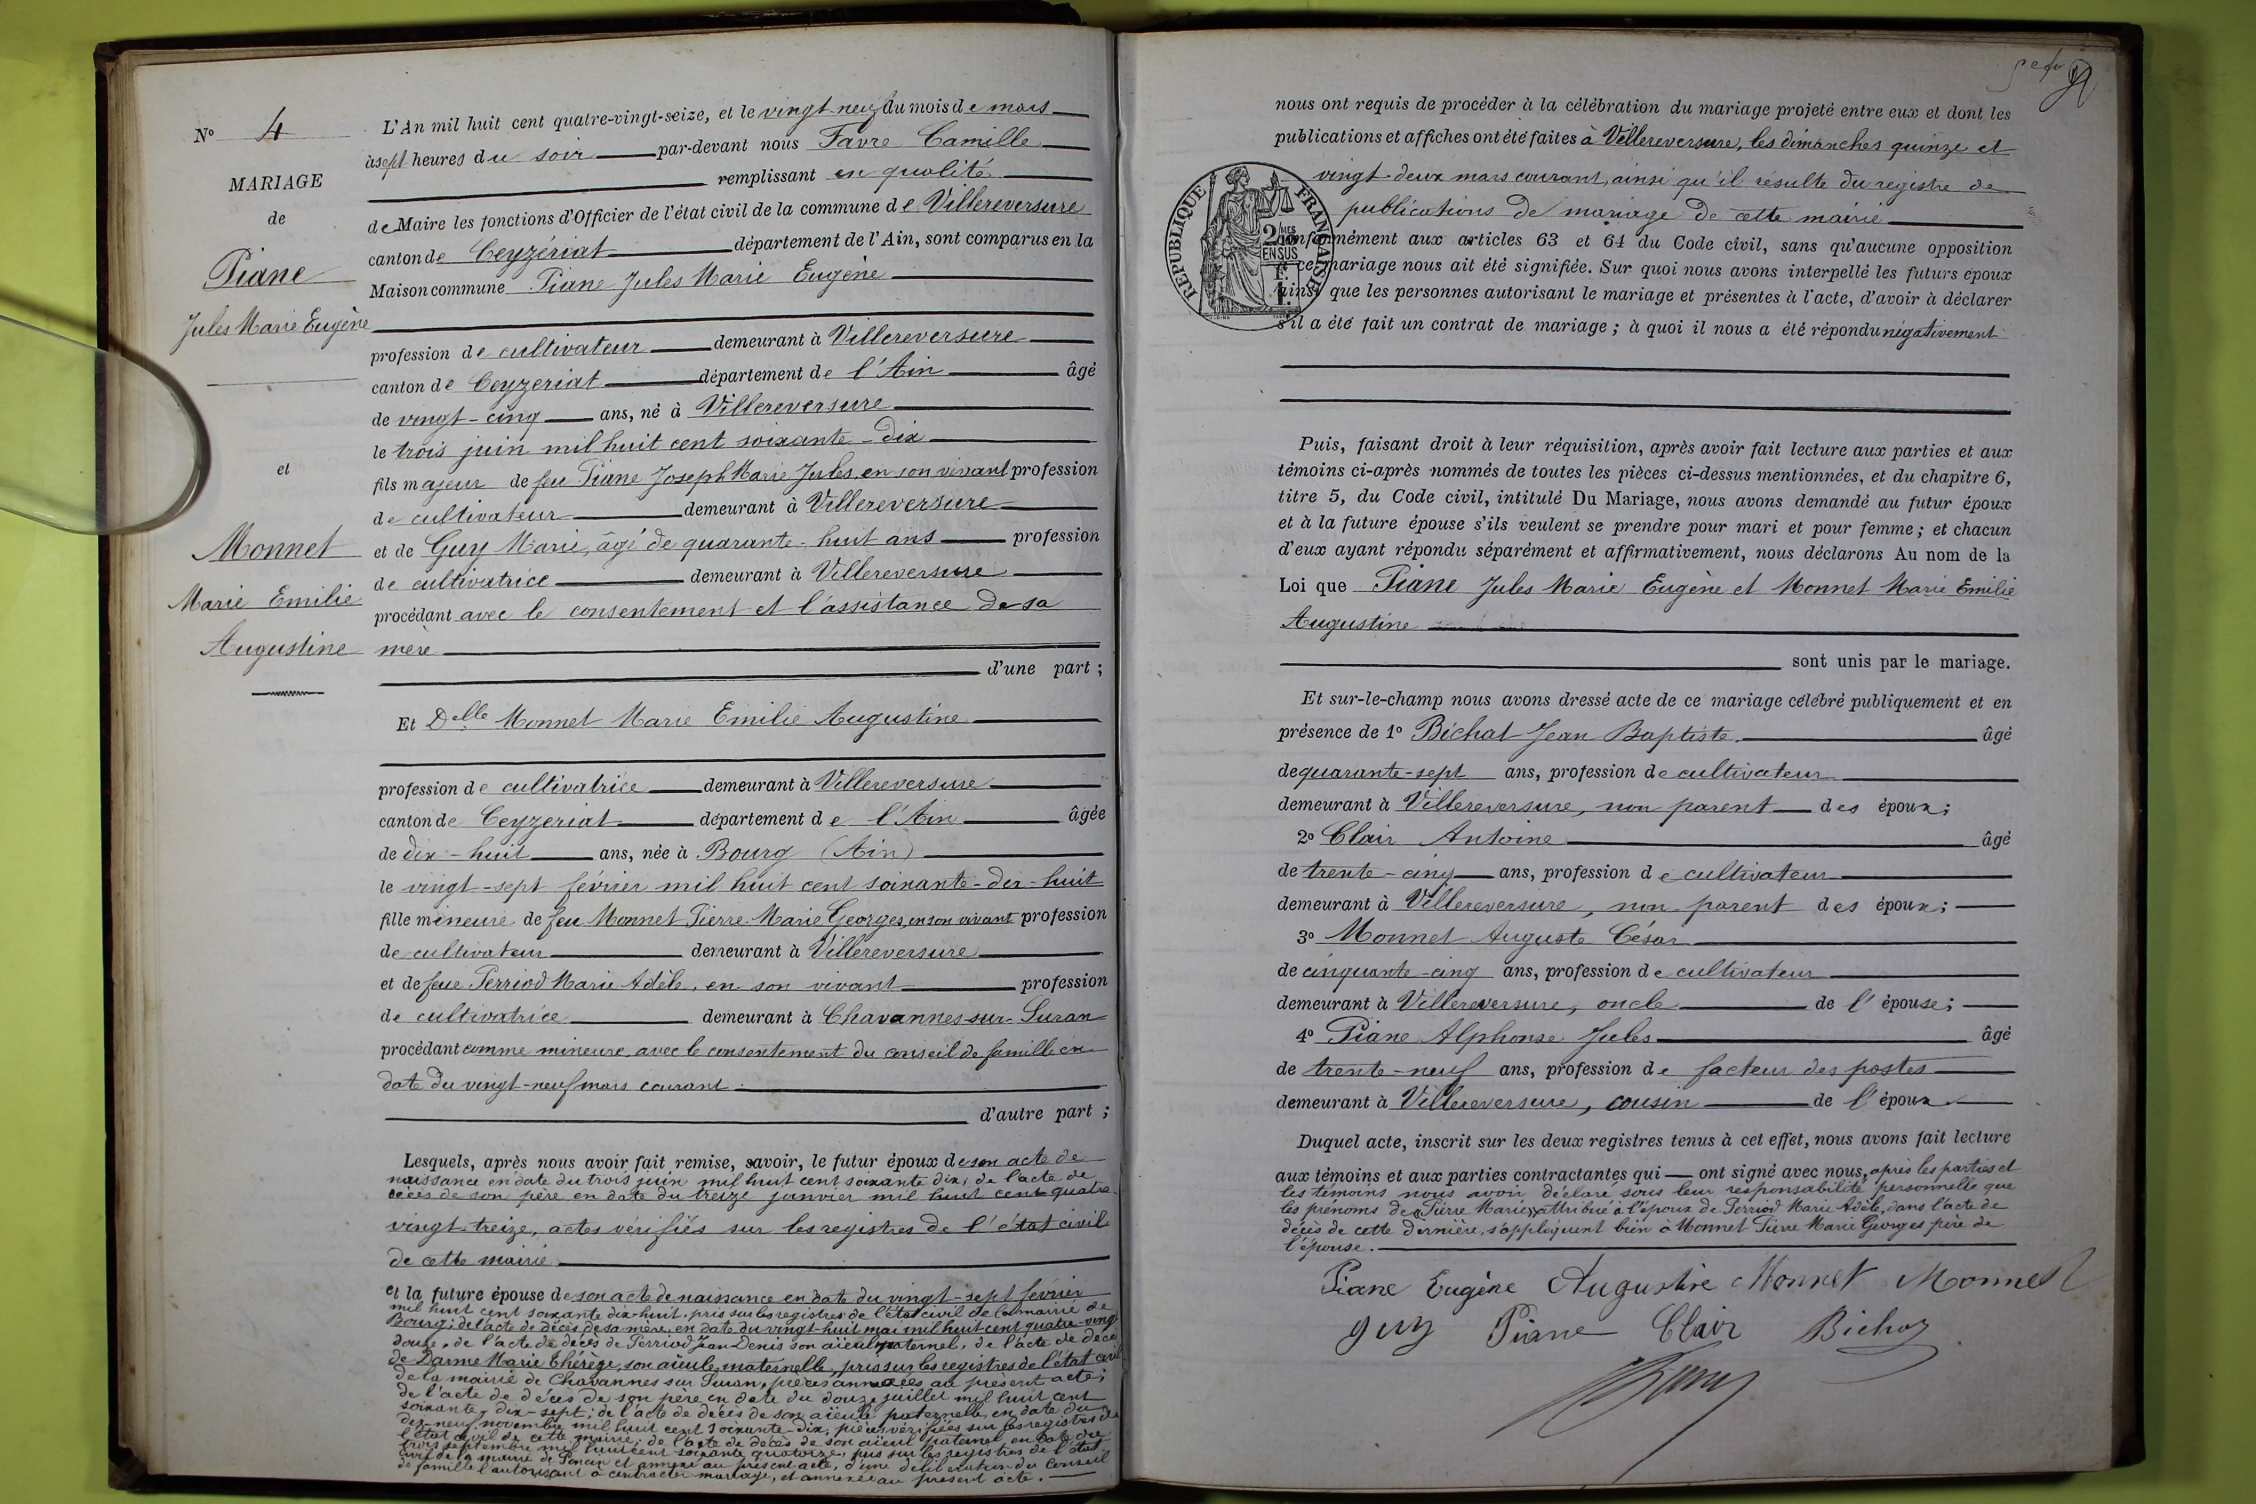 N° 4
MARIAGE
de
Piane
Jules Marie Eugène
et
Monnet
Marie Emilie
Augustine
L'An mil huit cent quatre-vingt-seize, et le vingt-neuf du mois de mars
à sept heures du soir par-devant nous Favre Camille
remplissant en qualité
de Maire les fonctions d'Officier de l'état civil de la commune de Villereversure
canton de Ceyzériat département de l'Ain, sont comparus en la
Maison commune Piane Jules Marie Eugène
profession de cultivateur demeurant à Villereversure
canton de Ceyzeriat département de l'Ain âgé
de vingt-cinq ans, né à Villereversure
le trois juin mil huit cent soixante-dix
fils majeur de feu Piane Joseph Marie Jules en son vivant profession
de cultivateur demeurant à Villereversure
et de Guy Marie, âgé de quarante-huit ans profession
de cultivatrice demeurant à Villereversure
procédant avec le consentement et l'assistance de sa
mère
d'une part ;
Et Delle Monnet Marie Emilie Augustine
profession de cultivatrice demeurant à Villereversure
canton de Ceyzeriat département de l'Ain âgée
de dix-huit ans, née à Bourg (Ain)
le vingt-sept février mil huit cent soixante-dix-huit
fille mineure de feu Monnet Pierre Marie Georges, en son vivant profession
de cultivateur demeurant à Villereversure
et de feue Perriod Marie Adèle, en son vivant profession
de cultivatrice demeurant à Chavannes-sur-Suran
procédant comme mineure avec le consentement du conseil de famille en
date du vingt-neuf mars courant.
d'autre part ;
Lesquels, après nous avoir fait remise, savoir, le futur époux de son acte de
naissance en date du trois juin mil huit cent soixante dix, de l'acte de
décès de son père en date du treize janvier mil huit cent quatre-
vingt-treize, actes vérifiés sur les registres de l'état civil
de cette mairie
et la future épouse de son acte de naissance en date du vingt-sept février
mil huit cent soixante dix-huit, pris sur les registres de l'état civil de la mairie de
Bourg; de l'acte de décès de sa mère, en date du vingt-huit mai mil huit cent quatre-vingt
douze, de l'acte de décès de Perriod Jean Denis son aïeul maternel, de l'acte de décès
de Darme Marie Thérèse, son aïeule maternelle, pris sur les registres de l'état civil
de la mairie de Chavannes sur Suran, pièces annexées au présent acte;
de l'acte de décès de son père en date du douze juillet mil huit cent
soixante-dix-sept; de l'acte de décès de son aïeule paternelle en date du
dix-neuf novembre mil huit cent soixante-dix, pièces vérifiées sur les registres de
l'état civil de cette mairie; de l'acte de décès de son aïeul paternel en date du
trois septembre mil huit cent soixante quatorze, pris sur les registres de l'état
civil de la mairie de Poncin et annexé au présent acte, d'une délibération du conseil
de famille l'autorisant à contracter mariage, et annexée au présent acte.
nous ont requis de procéder à la célébration du mariage projeté entre eux et dont les
publications et affiches ont été faites à Villereversure, les dimanches quinze et
vingt-deux mars courant, ainsi qu'il résulte du registre de
publications de mariage de cette mairie
conformément aux articles 63 et 64 du Code civil, sans qu'aucune opposition
à ce mariage nous ait été signifiée. Sur quoi nous avons interpellé les futurs époux
ainsi que les personnes autorisant le mariage et présentes à l'acte, d'avoir à déclarer
s'il a été fait un contrat de mariage ; à quoi il nous a été répondu négativement
RÉPUBLIQUE FRANÇAISE
2 MES
EN SUS
Puis, faisant droit à leur réquisition, après avoir fait lecture aux parties et aux
témoins ci-après nommés de toutes les pièces ci-dessus mentionnées, et du chapitre 6,
titre 5, du Code civil, intitulé Du Mariage, nous avons demandé au futur époux
et à la future épouse s'ils veulent se prendre pour mari et pour femme ; et chacun
d'eux ayant répondu séparément et affirmativement, nous déclarons Au nom de la
Loi que Piane Jules Marie Eugène et Monnet Marie Emilie
Augustine
sont unis par le mariage.
Et sur-le-champ nous avons dressé acte de ce mariage célébré publiquement et en
présence de 1° Bichat Jean Baptiste âgé
de quarante-sept ans, profession de cultivateur
demeurant à Villereversure, non parent des époux ;
2° Clair Antoine âgé
de trente-cinq ans, profession de cultivateur
demeurant à Villereversure, non parent des époux ;
3° Monnet Auguste César
de cinquante-cinq ans, profession de cultivateur
demeurant à Villereversure, oncle de l'épouse ;
4° Piane Alphonse Jules âgé
de trente-neuf ans, profession de facteur des postes
demeurant à Villereversure, cousin de l'époux
Duquel acte, inscrit sur les deux registres tenus à cet effet, nous avons fait lecture
aux témoins et aux parties contractantes qui ont signé avec nous, après les parties et
les témoins nous avoir déclaré sous leur responsabilité personnelle que
les prénoms de "Pierre Marie" attribué à l'époux de Perriod Marie Adèle, dans l'acte de
décès de cette dernière, s'appliquent bien à Monnet Pierre Marie Georges père de
l'épouse.
Piane Eugène Augustine Monnet Monnet
guy Piane Clair Bichat